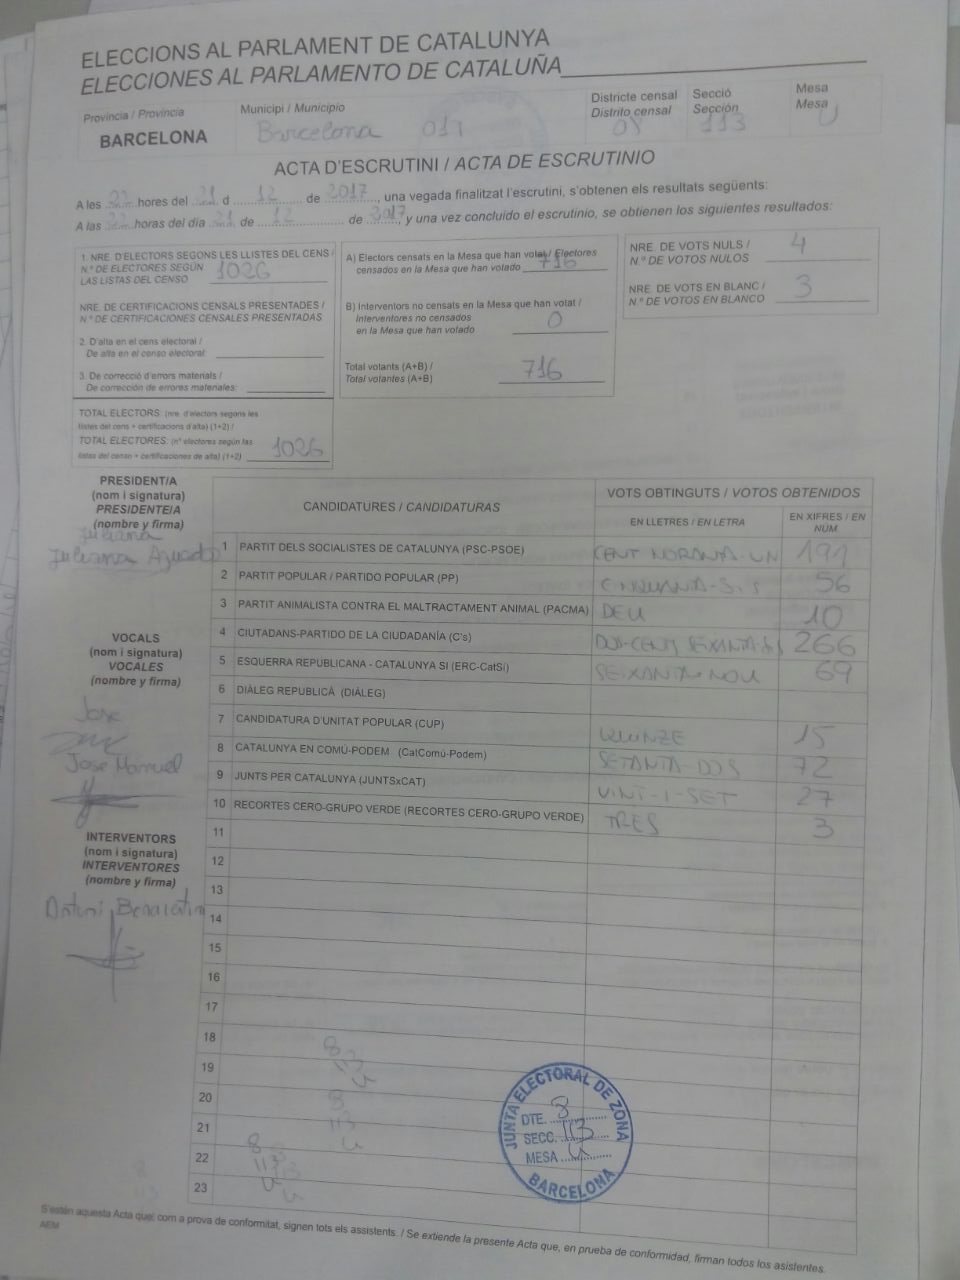 ELECCIONS AL PARLAMENT DE CATALUNYA
ELECCIONES AL PARLAMENTO DE CATALUÑA
Província / Provincia
BARCELONA
Municipi / Municipio
Barcelona 011
Districte censal
Distrito censal
08
Secció
Sección
113
Mesa
Mesa
U
ACTA D'ESCRUTINI / ACTA DE ESCRUTINIO
A les 22 hores del 21 d 12 de 2017, una vegada finalitzat l'escrutini, s'obtenen els resultats següents:
A las 22 horas del día 21 de 12 de 2017, y una vez concluido el escrutinio, se obtienen los siguientes resultados:
1. NRE. D'ELECTORS SEGONS LES LLISTES DEL CENS /
N.º DE ELECTORES SEGÚN
LAS LISTAS DEL CENSO 1026
NRE. DE CERTIFICACIONS CENSALS PRESENTADES /
N.º DE CERTIFICACIONES CENSALES PRESENTADAS
2. D'alta en el cens electoral /
De alta en el censo electoral:
3. De correcció d'errors materials /
De corrección de errores materiales:
TOTAL ELECTORS: (nre. d'electors segons les
llistes del cens + certificacions d'alta) (1+2) /
TOTAL ELECTORES: (nº electores según las
listas del censo + certificaciones de alta) (1+2) 1026
A) Electors censats en la Mesa que han votat / Electores
censados en la Mesa que han votado 716
B) Interventors no censats en la Mesa que han votat /
Interventores no censados
en la Mesa que han votado 0
Total votants (A+B) /
Total votantes (A+B) 716
NRE. DE VOTS NULS /
N.º DE VOTOS NULOS 4
NRE. DE VOTS EN BLANC /
N.º DE VOTOS EN BLANCO 3
PRESIDENT/A
(nom i signatura)
PRESIDENTE/A
(nombre y firma)
Juliana
Juliana Aguado
VOCALS
(nom i signatura)
VOCALES
(nombre y firma)
Jose
Jose Manuel
INTERVENTORS
(nom i signatura)
INTERVENTORES
(nombre y firma)
Antoni
CANDIDATURES / CANDIDATURAS
VOTS OBTINGUTS / VOTOS OBTENIDOS
EN LLETRES / EN LETRA
EN XIFRES / EN NÚM
1 PARTIT DELS SOCIALISTES DE CATALUNYA (PSC-PSOE) CENT NORANTA-UN 191
2 PARTIT POPULAR / PARTIDO POPULAR (PP) CINQUANTA-SIS 56
3 PARTIT ANIMALISTA CONTRA EL MALTRACTAMENT ANIMAL (PACMA) DEU 10
4 CIUTADANS-PARTIDO DE LA CIUDADANÍA (C's) DOS-CENTS SEIXANTA-SIS 266
5 ESQUERRA REPUBLICANA - CATALUNYA SÍ (ERC-CatSí) SEIXANTA-NOU 69
6 DIÀLEG REPUBLICÀ (DIÀLEG)
7 CANDIDATURA D'UNITAT POPULAR (CUP) QUINZE 15
8 CATALUNYA EN COMÚ-PODEM (CatComú-Podem) SETANTA-DOS 72
9 JUNTS PER CATALUNYA (JUNTSxCAT) VINT-I-SET 27
10 RECORTES CERO-GRUPO VERDE (RECORTES CERO-GRUPO VERDE) TRES 3
11
12
13
14
15
16
17
18
19
20
21
22
23
8
113
U
8
113
U
8
113
U
JUNTA ELECTORAL DE ZONA
DTE. 8
SECC. 113
MESA U
BARCELONA
S'estén aquesta Acta que, com a prova de conformitat, signen tots els assistents. / Se extiende la presente Acta que, en prueba de conformidad, firman todos los asistentes.
AEM